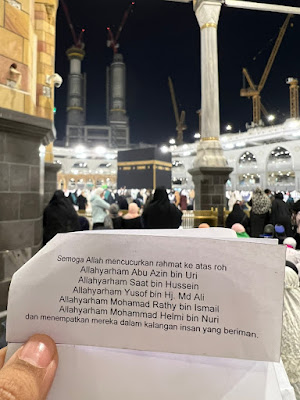 Semoga Allah mencucurkan rahmat ke atas roh
Allahyarham Abu Azin bin Uri
Allahyarham Saat bin Hussein
Allahyarham Yusof bin Hj. Md Ali
Allahyarham Mohamad Rathy bin Ismail
Allahyarham Mohammad Helmi bin Nuri
dan menempatkan mereka dalam kalangan insan yang beriman.